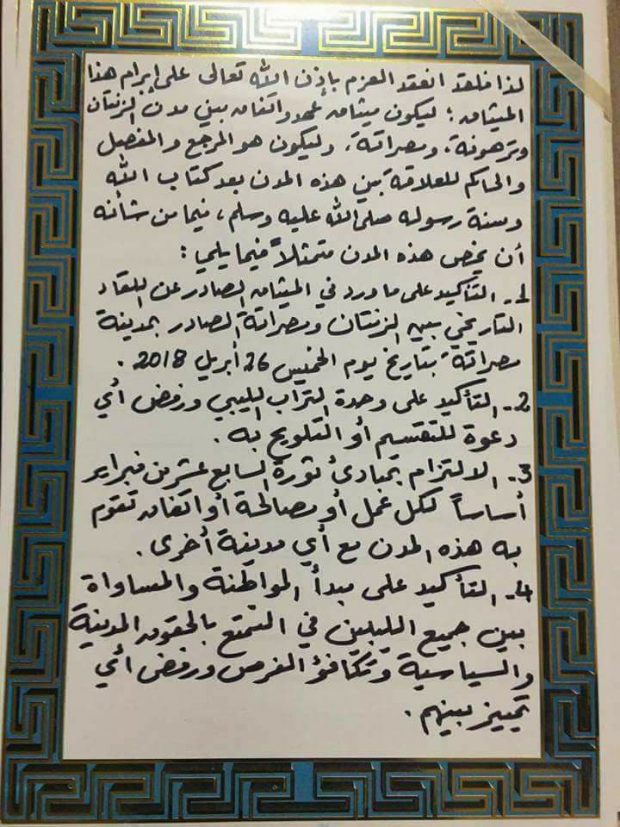 لذا فلقد انعقد العزم بإذن الله تعالى على إبرام هذا
الميثاق ؛ ليكون ميثاق عهد واتفاق بين مدن الزنتان
وترهونة، ومصراتة، وليكون هو المرجع والمفصل
والحاكم للعلاقة بين هذه المدن بعد كتاب الله
وسنة رسوله صلى الله عليه وسلم، فيما من شأنه
أن يخص هذه المدن متمثلاً فيما يلي :
1- التأكيد على ما ورد في الميثاق الصادر عن اللقاء
التاريخي بين الزنتان ومصراتة الصادر بمدينة
مصراتة بتاريخ يوم الخميس 26 أبريل 2018 .
2- التأكيد على وحدة التراب الليبي ورفض أي
دعوة للتقسيم أو التلويح به .
3- الالتزام بمبادئ ثورة السابع عشر من فبراير
أساساً لكل عمل أو مصالحة أو اتفاق تقوم
به هذه المدن مع أي مدينة أخرى .
4- التأكيد على مبدأ المواطنة والمساواة
بين جميع الليبين في التمتع بالحقوق المدنية
والسياسية وتكافؤ الفرص ورفض أي
تمييز بينهم .